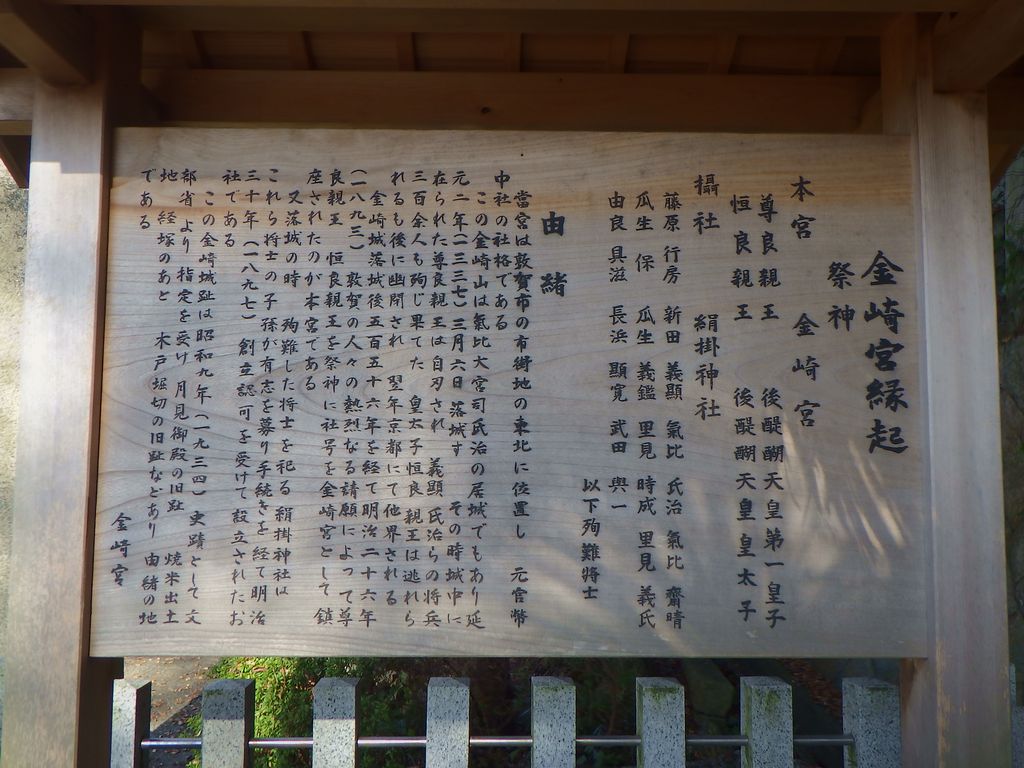 金崎宮縁起
祭神
本宮　金崎宮
尊良親王　後醍醐天皇第一皇子
恒良親王　後醍醐天皇皇太子
攝社　絹掛神社
藤原行房　新田義顯　氣比氏治　氣比齋晴
瓜生保　瓜生義鑑　里見時成　里見義氏
由良具滋　長浜顯寛　武田與一
以下殉難将士
由緒
當宮は敦賀市の市街地の東北に位置し　元官幣
中社の社格である
この金崎山は氣比大宮司氏治の居城でもあり延
元二年（一三三七）三月六日落城す　その時城中に
在られた尊良親王は自刃され　義顯氏治らの将兵
三百余人も殉じ果てた　皇太子恒良親王は逃れら
れるも後に幽閉され　翌年京都にて他界される
金崎城落城後五百五十六年を経て明治二十六年
（一八九三）敦賀の人々の熱烈なる請願によって尊
良親王　恒良親王を祭神に社号を金崎宮として鎮
座されたのが本宮である
又落城の時　殉難した将士を祀る絹掛神社は
これら将士の子孫が有志を募り手続きを経て明治
三十年（一八九七）創立認可を受けて設立されたお
社である
この金崎城趾は昭和九年（一九三四）史蹟として文
部省より指定を受け　月見御殿の旧趾　焼米出土
地　経塚のあと　木戸堀切の旧趾などあり　由緒の地
である
金崎宮